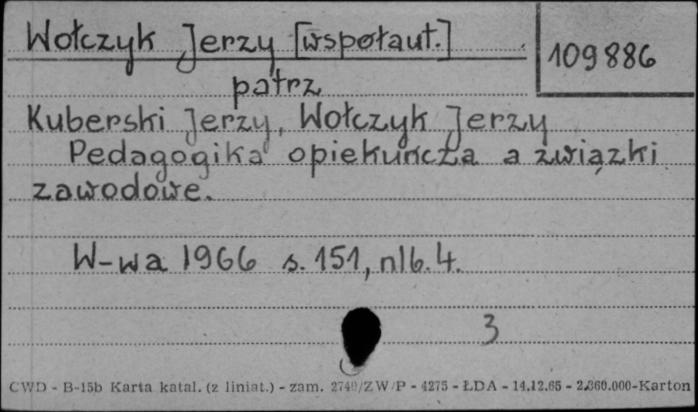 Wołczyk Jerzy [współaut.]
109886
patrz
Kuberski Jerzy, Wołczyk Jerzy
Pedagogika opiekuńcza a związki
zawodowe.
W-wa 1966 s. 151, nlb. 4.
3
CWD - B-15b Karta katal. (z liniat.) - zam. 2740/ZW/P - 4275 - ŁDA - 14.12.65 - 2.360.000-Karton